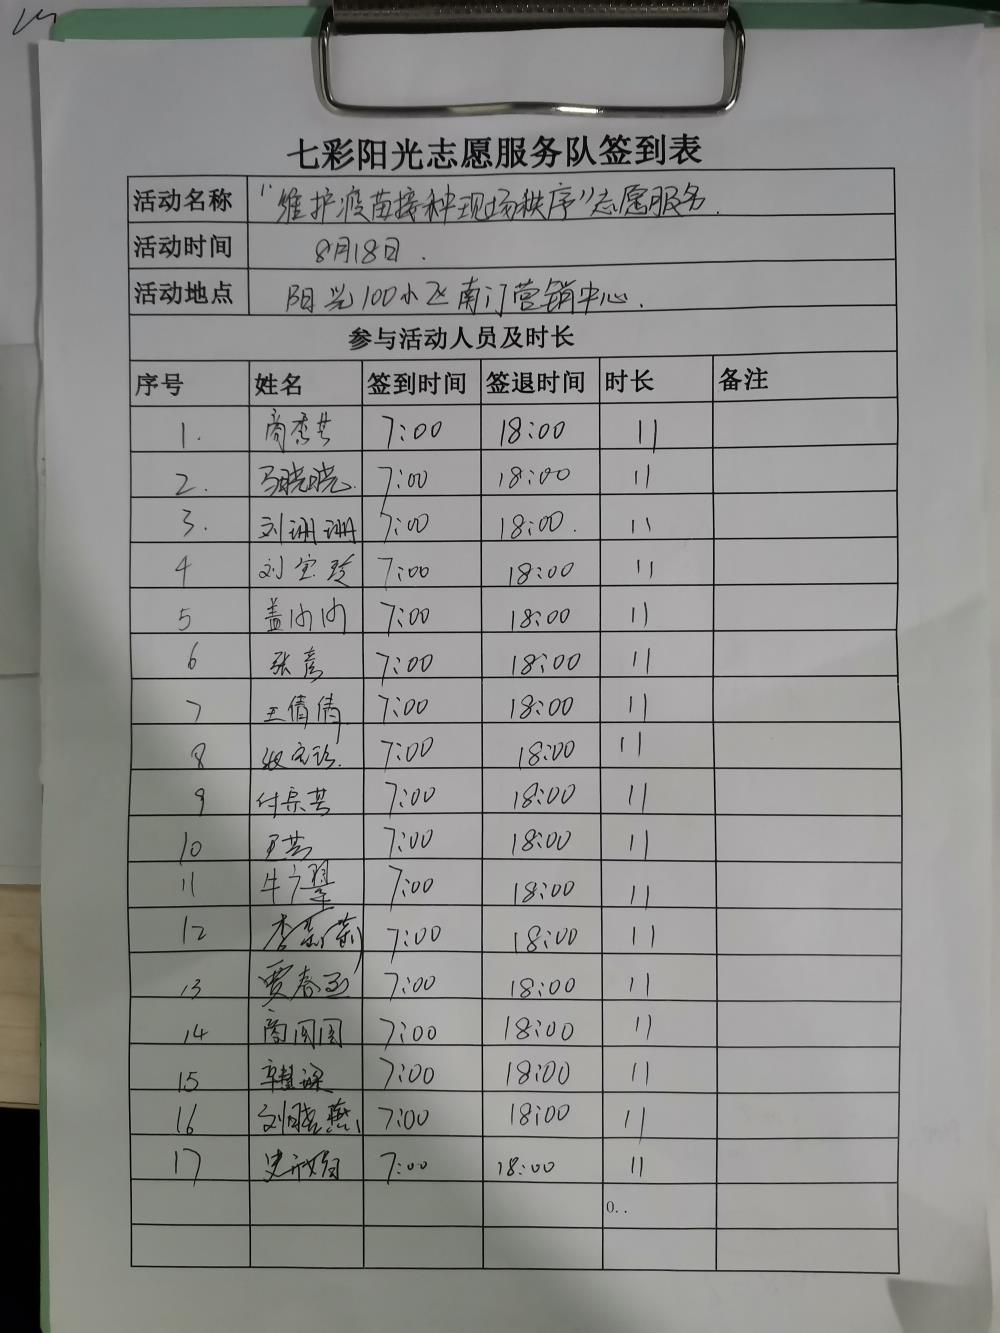 七彩阳光志愿服务队签到表
活动名称 "维护疫苗接种现场秩序"志愿服务.
活动时间 8月18日.
活动地点 阳光100小区南门营销中心.
参与活动人员及时长
序号 姓名 签到时间 签退时间 时长 备注
1. 7:00 18:00 11
2. 马晓晓. 7:00 18:00 11
3. 刘珊珊 7:00 18:00. 11
4 刘宝玲 7:00 18:00 11
5 盖 7:00 18:00 11
6 张彦 7:00 18:00 11
7 王倩倩 7:00 18:00 11
8 7:00 18:00 11
9 7:00 18:00 11
10 7:00 18:00 11
11 牛 7:00 18:00 11
12 李 7:00 18:00 11
13 贾春 7:00 18:00 11
14 商园园 7:00 18:00 11
15 7:00 18:00 11
16 刘晓燕 7:00 18:00 11
17 7:00 18:00 11
0..